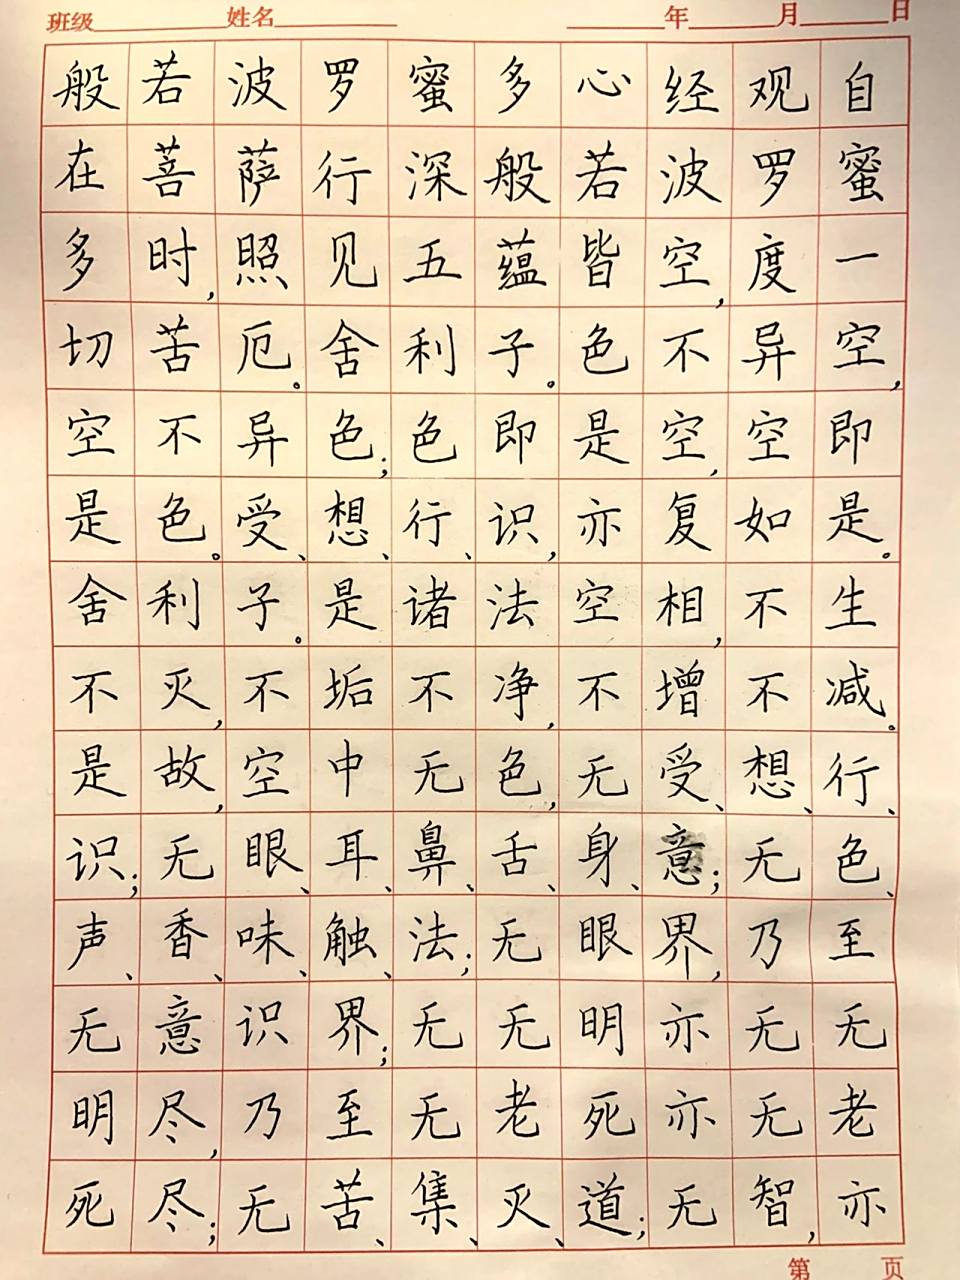 班级 姓名 年 月 日
般若波罗蜜多心经观自
在菩萨行深般若波罗蜜
多时,照见五蕴皆空,度一
切苦厄。舍利子。色不异空,
空不异色;色即是空,空即
是色。受、想、行、识,亦复如是。
舍利子。是诸法空相,不生
不灭,不垢不净,不增不减。
是故,空中无色,无受、想、行、
识;无眼、耳、鼻、舌、身、意;无色、
声、香、味、触、法;无眼界,乃至
无意识界;无无明亦无无
明尽,乃至无老死亦无老
死尽;无苦、集、灭、道;无智,亦
第 页